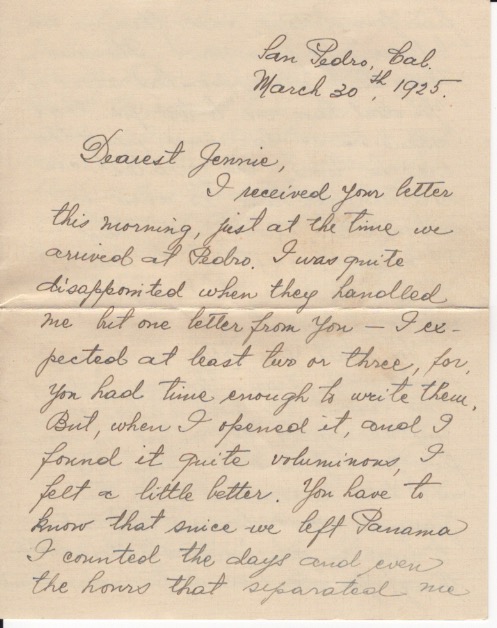 San Pedro, Cal.
March 30th, 1925.
Dearest Jennie,
I received your letter
this morning, just at the time we
arrived at Pedro. I was quite
disappointed when they handled
me but one letter from you — I ex-
pected at least two or three, for,
you had time enough to write them.
But, when I opened it, and I
found it quite voluminous, I
felt a little better. You have to
know that since we left Panama
I counted the days and even
the hours that separated me